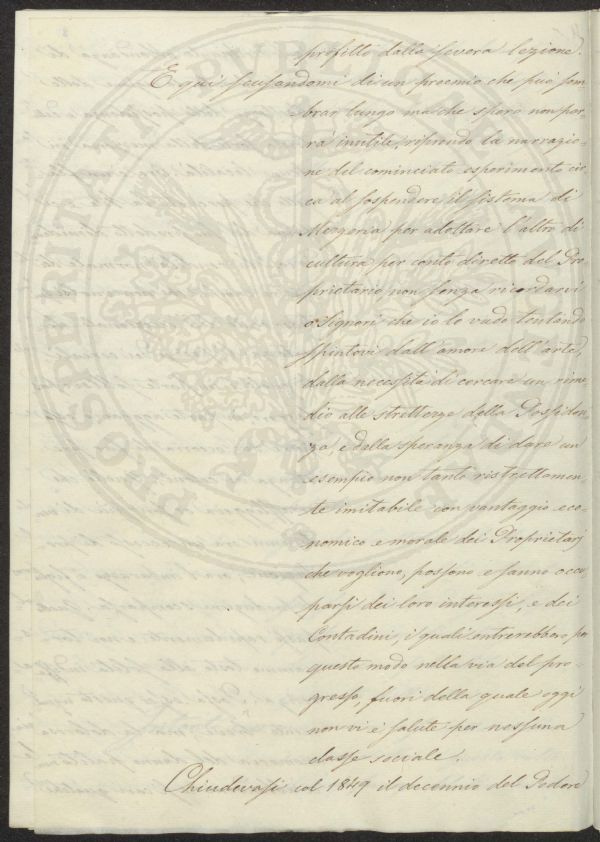 profitto dalla severa lezione.
E qui scusandomi di un proemio che può sem
brar lungo ma che spero non par
rà inutile, riprendo la narrazio-
ne del cominciato esperimento cir
ca al sospendere il sistema di
Mezzeria per adottare l'altro di
cultura per conto diretto del Pro-
prietario, non senza ricordarvi
o Signori che io lo vado tentando
spintovi dall'amore dell'arte,
dalla necessità di cercare un rime
dio alle strettezze della Possiden
za, e dalla speranza di dare un
esempio non tanto ristrettamen
te imitabile con vantaggio eco
nomico e morale dei Proprietarj
che vogliono, possono e sanno occu
parsi dei loro interessi, e dei
Contadini, i quali entrerebbero per
questo modo nella via del pro-
gresso, fuori della quale oggi
non vi è salute per nessuna
classe sociale.
Chiudevasi col 1849 il decennio del Podere
PROSPERITATI PVBLICAE